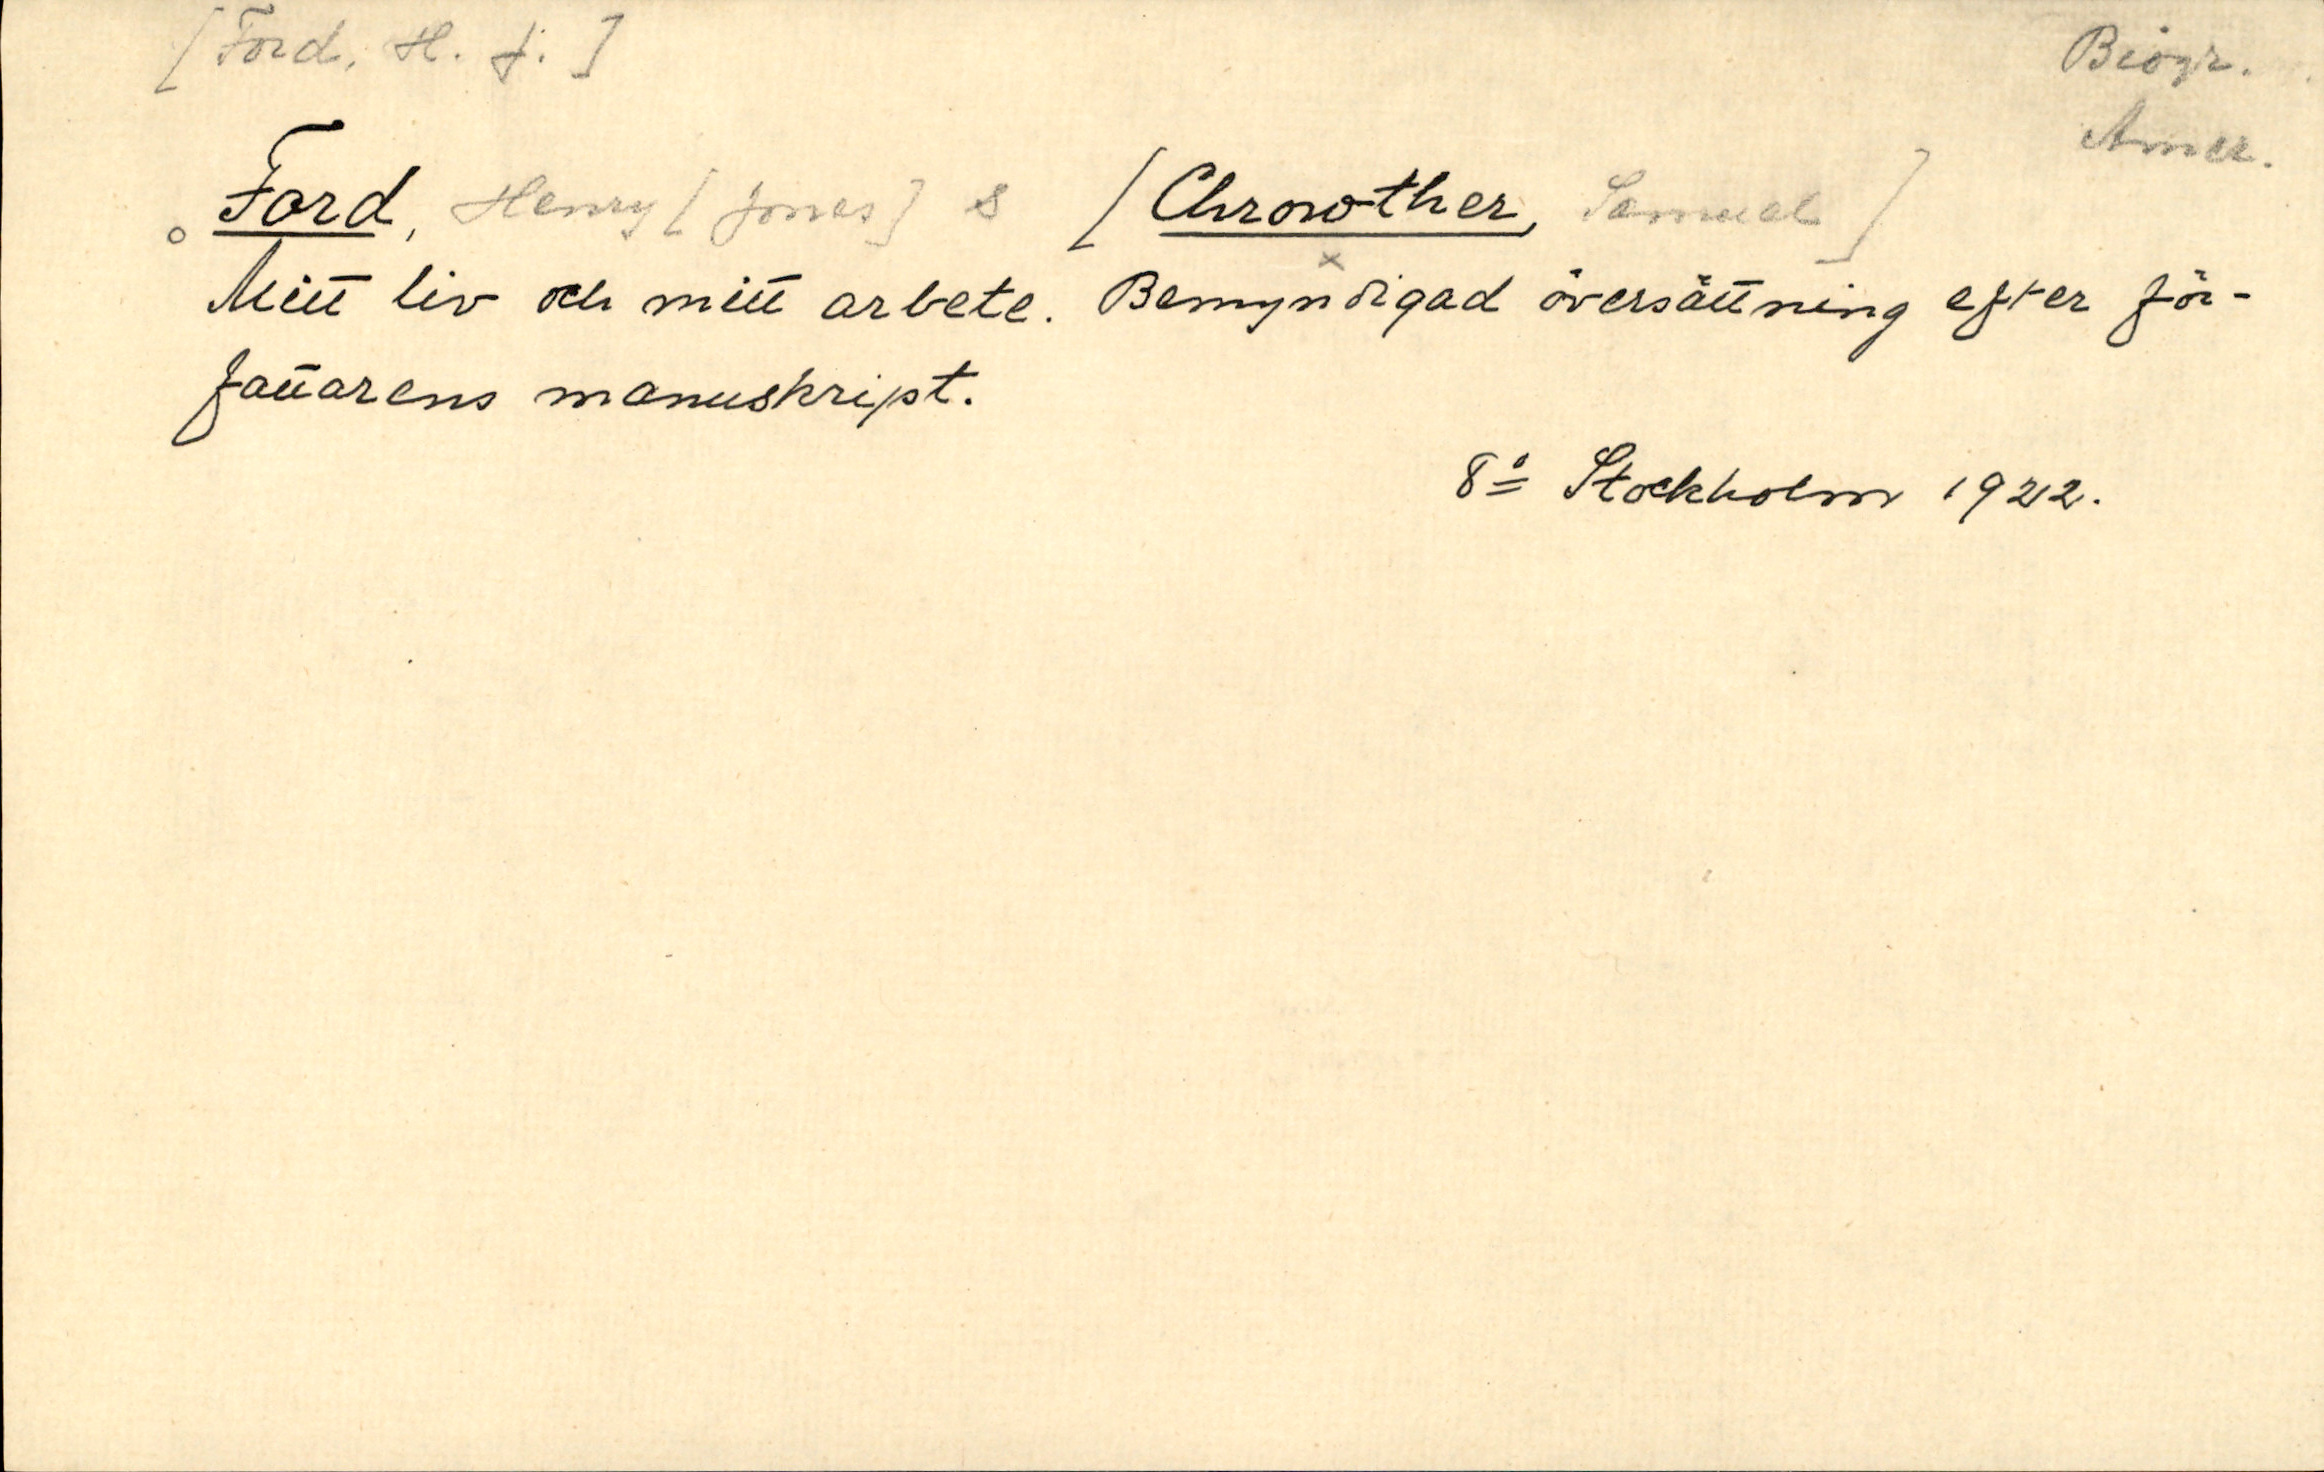 [Ford, H. J.]
Biogr.
Amer.
Ford, Henry [Jones] & [Chrowther, Samuel]
Mitt liv och mitt arbete. Bemyndigad översättning efter för-
fattarens manuskript.
8º Stockholm 1922.